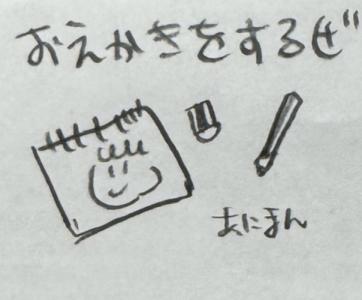 おえかきをするぜ
あにまん